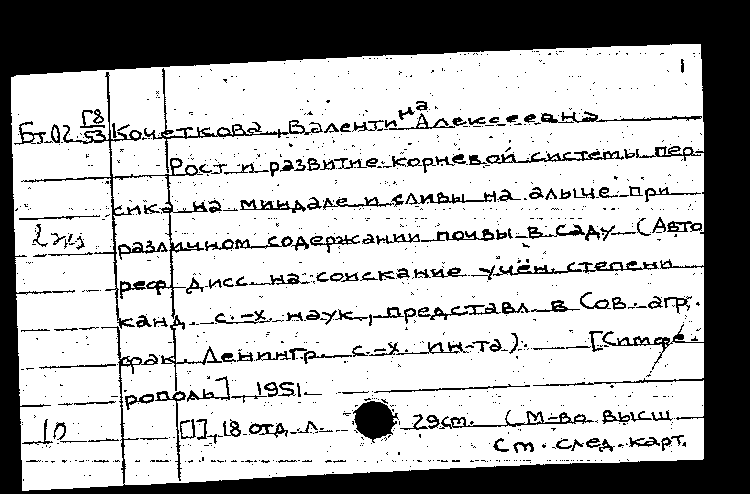 1
Бт.02 Г8/53 Кочеткова, Валентина Алексеевна
Рост и развитие корневой системы пер-
сика на миндале и сливы на алыче при
2 экз различном содержании почвы в саду (Авто
реф. дисс. на соискание учён. степени
канд. с.-х. наук, представл. в Сов. агр.
фак. Ленингр. с.-х. ин-та). [Симфе-
рополь], 1951.
10 [1], 18 отд. л. 29 см. (М-во высш
См. след. карт.